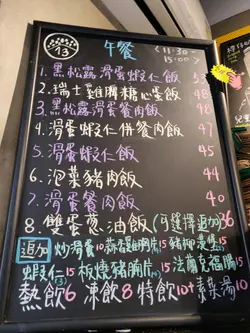 13
午餐
(11:30-15:00)
1. 黑松露滑蛋蝦仁飯
2. 瑞士雞髀糖心蛋飯 48
3. 黑松露滑蛋餐肉飯 48
4. 滑蛋蝦仁併餐肉飯 47
5. 滑蛋蝦仁飯 45
6. 泡菜豬肉飯 44
7. 滑蛋餐肉飯 40
8. 雙蛋蔥油飯(可選擇追加) 36
追加 炒滑蛋10 豬柳漢堡15
蝦仁15 板燒豬胸片15 法蘭克福腸15
熱飲6 凍飲8 特飲10+ 素菜湯10